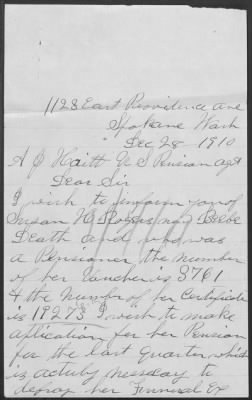 1128 East Providence Ave
Spokane Wash
Dec 28 1910
A J Haitt U S Pension agt
Dear Sir
I wish to inform you of
Susan H Rogers now Beebe
Death and who was
a Pensioner the number
of her Vaucher is 3761
& the number of her Certificate
is 19273 I wish to make
aplication for her Pension
for the last Quarter which
is actuly nessesary to
defray her Funeral Ex